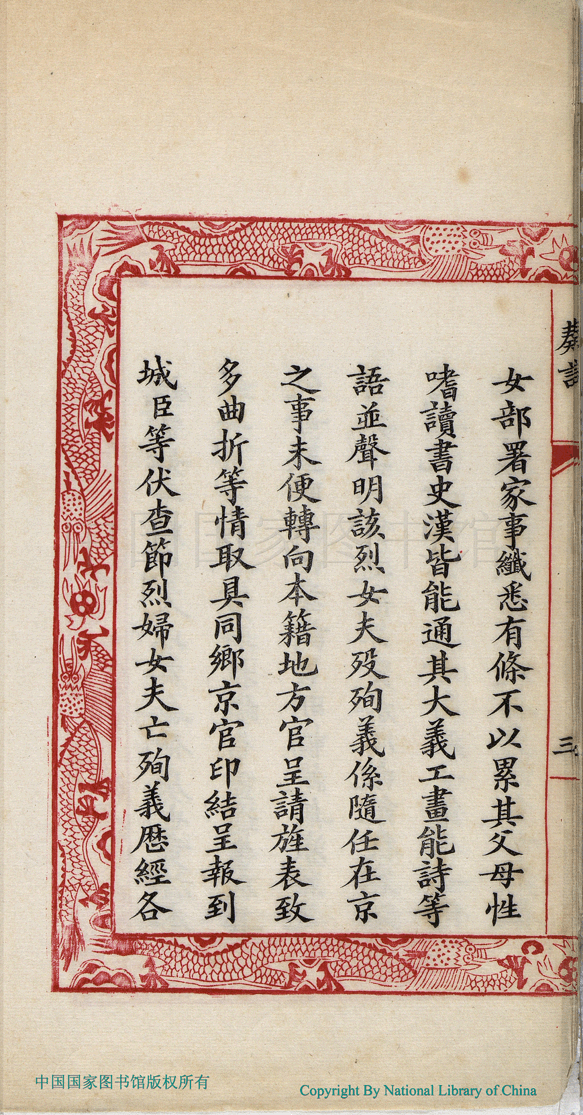 奏請
三
女部署家事纖悉有條不以累其父母性
嗜讀書史漢皆能通其大義工畫能詩等
語並聲明該烈女夫歿殉義係隨任在京
之事未便轉向本籍地方官呈請旌表致
多曲折等情取具同鄉京官印結呈報到
城臣等伏查節烈婦女夫亡殉義歷經各
中国国家图书馆
中国国家图书馆版权所有
Copyright By National Library of China